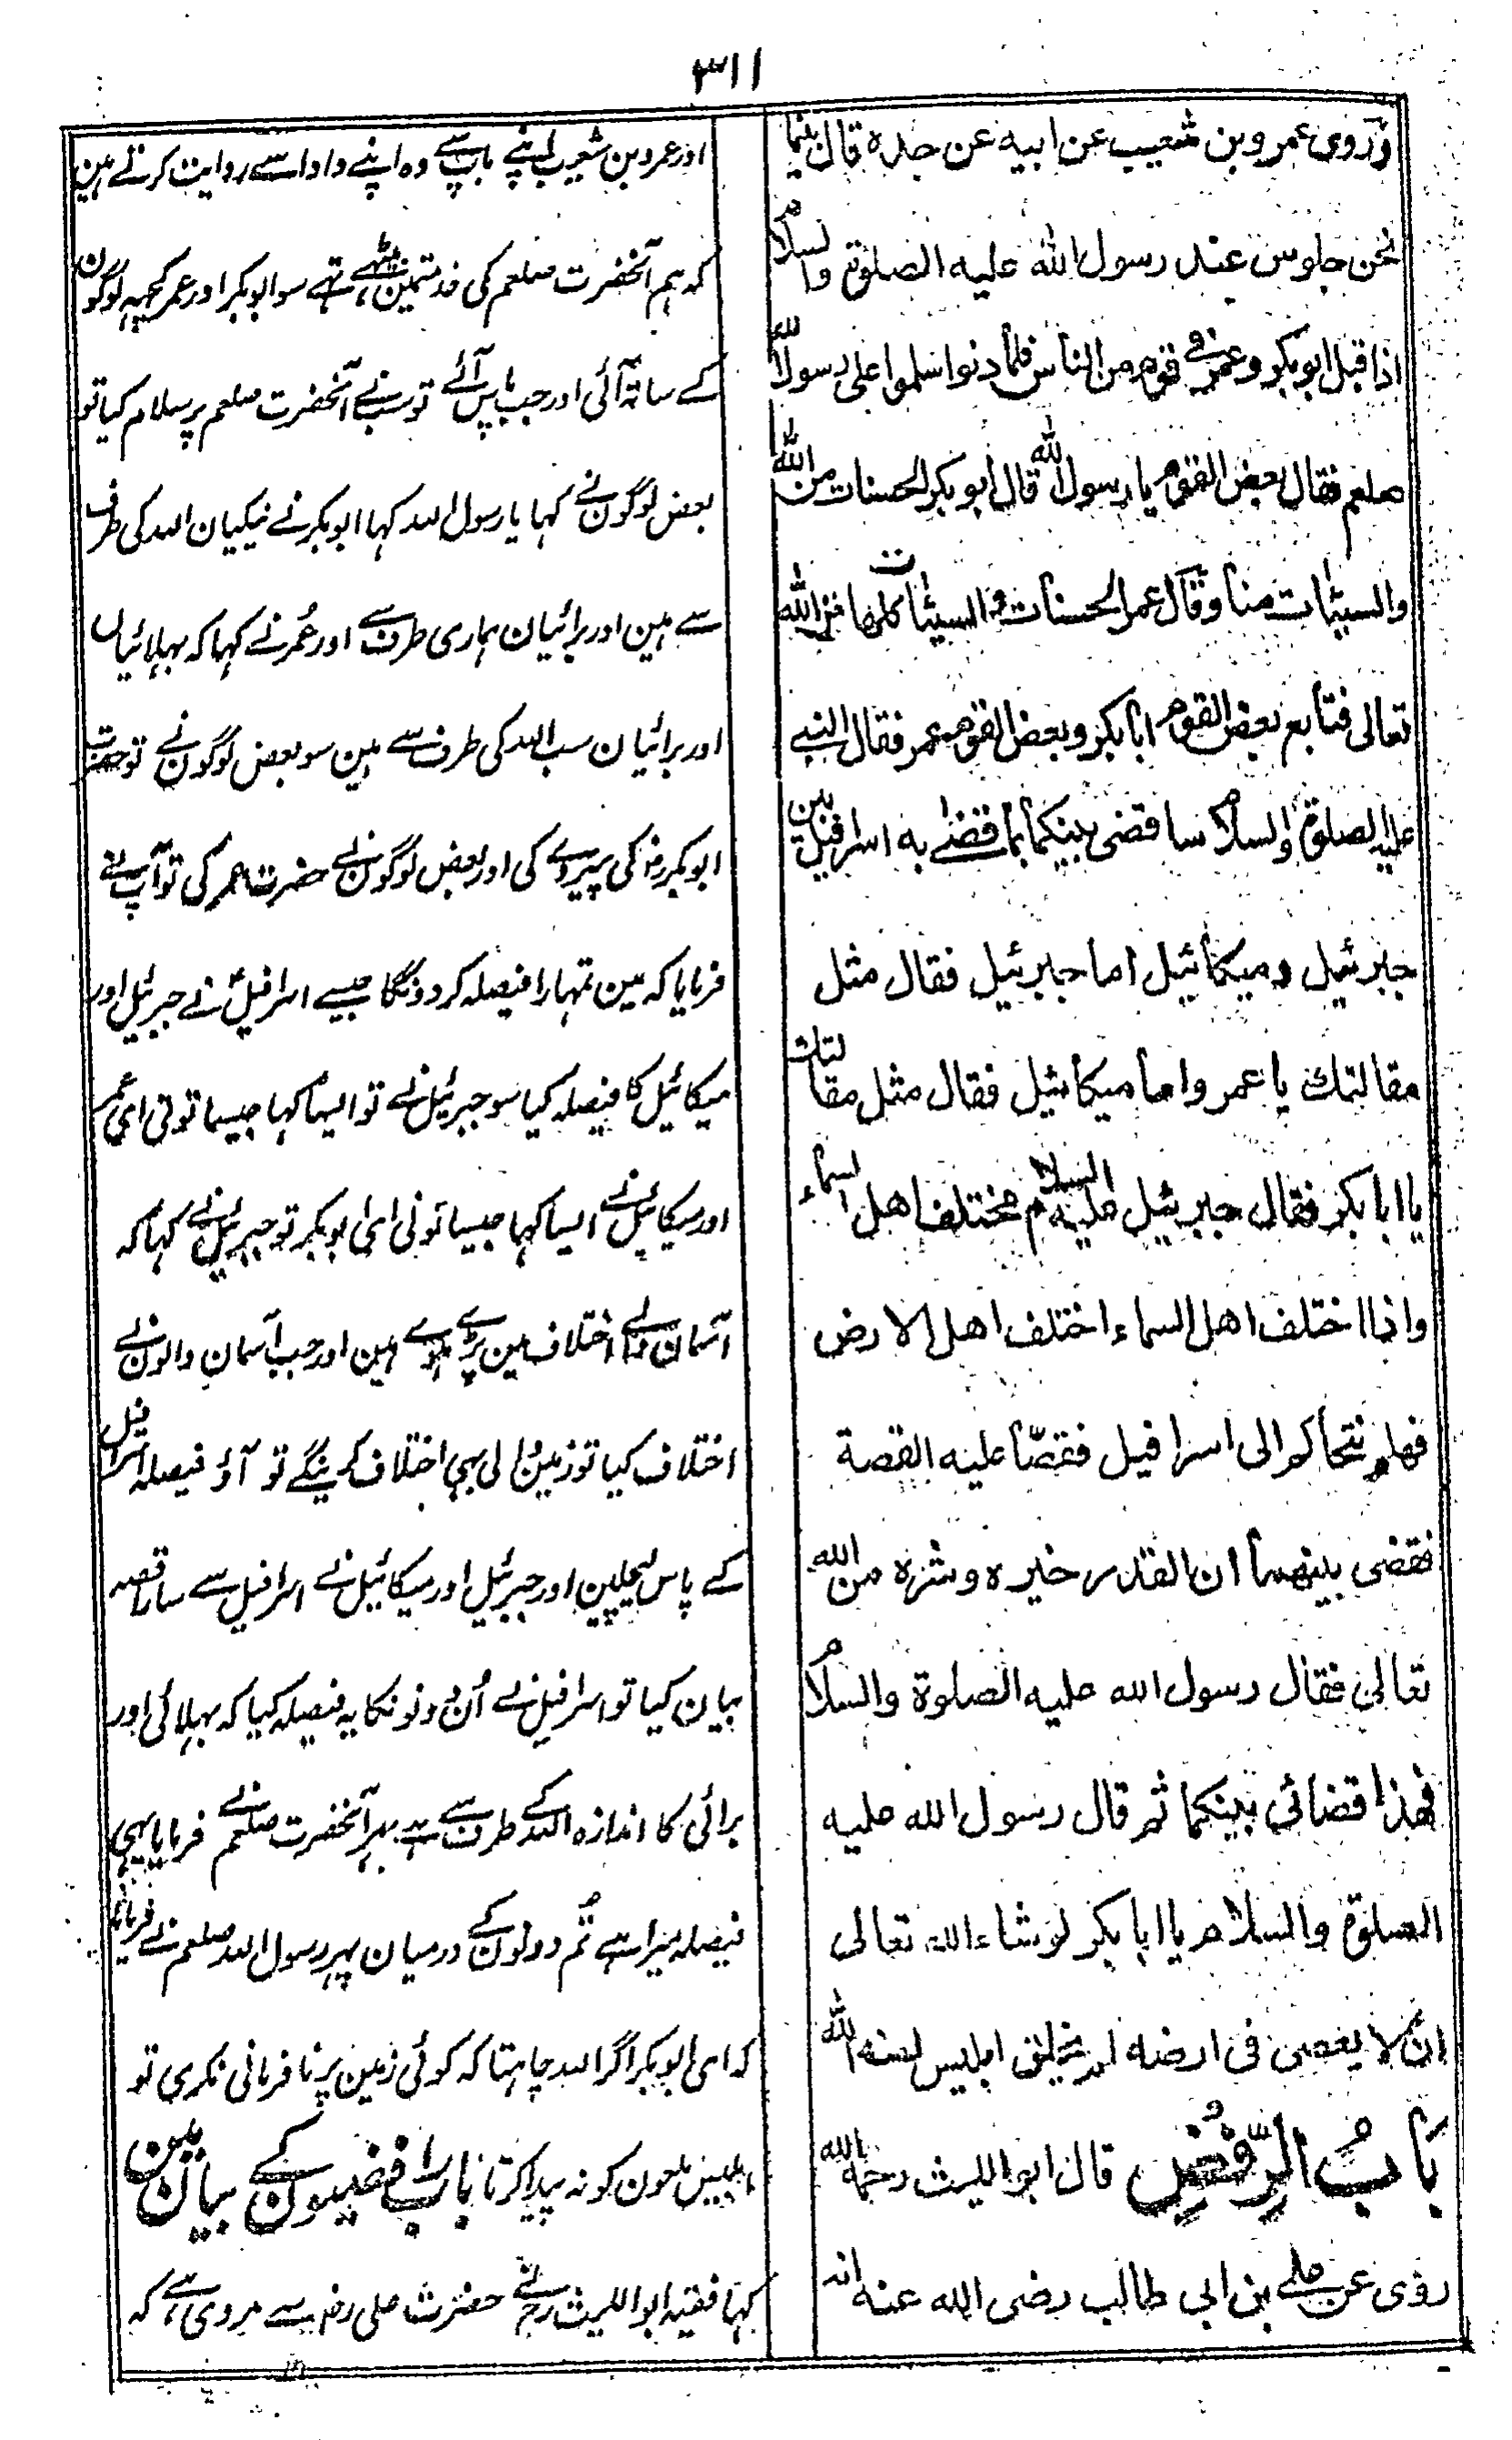 ٣١١
وروى عمرو بن شعيب عن ابيه عن جده قال بينما
نحن جلوس عند رسول الله عليه الصلوة والسلام
اذا قبل ابو بكر وعمر في قوم من الناس فلما دنوا سلموا على رسول الله
صلعم فقال بعض القوم يا رسول الله قال ابو بكر الحسنات من الله
والسيئات منا وقال عمر الحسنات والسيئات كلها من الله
تعالى فتابع بعض القوم ابا بكر وبعض القوم عمر فقال النبي
عليه الصلوة والسلام سا قضى بينكما بما قضى به اسرافيل بين
جبرئيل وميكائيل اما جبرئيل فقال مثل
مقالتك يا عمر واما ميكائيل فقال مثل مقالتك
يا ابا بكر فقال جبرئيل عليه السلام مختلف اهل السماء
واذا اختلف اهل السماء اختلف اهل الارض
فهلم نتحاكم الى اسرافيل فقصّا عليه القصة
فقضى بينهما ان القدر خيره وشره من الله
تعالى فقال رسول الله عليه الصلوة والسلام
فهذا قضائي بينكما ثم قال رسول الله عليه
الصلوة والسلام يا ابا بكر لو شاء الله تعالى
ان لا يعصى فى ارضه لم يخلق ابليس لعنه الله
بَابُ الرِّفْضِ قال ابو الليث رحمه الله
روى عن علي بن ابى طالب رضى الله عنه انه
اور عمرو بن شعیب اپنے باپ سے وہ اپنے دادا سے روایت کرتے ہین
کہ ہم آنحضرت صلعم کی خدمتمین بیٹھے تہے سو ابوبکر اور عمر کچہہ لوگون
کے ساتہ آئی اور جب پاس آئے تو سب نے آنحضرت صلعم پر سلام کیا تو
بعض لوگون نے کہا یا رسول اللہ کہا ابوبکر نے نیکیان اللہ کی طرف
سے ہین اور برائیان ہماری طرف سے اور عُمر نے کہا کہ بہلائیاں
اور برائیان سب اللہ کی طرف سے ہین سو بعض لوگون نے تو حضرت
ابوبکر رض کی پیروی کی اور بعض لوگون نے حضرت عمر کی تو آپ نے
فرمایا کہ مین تمہارا فیصلہ کر دونگا جیسے اسرافیلؑ نے جبرئیل اور
میکائیل کا فیصلہ کیا سو جبرئیل نے تو ایسا کہا جیسا تونی ای عمر
اور میکائیل نے ایسا کہا جیسا تونی ای ابوبکر تو جبرئیل نے کہا کہ
آسمان والے اختلاف مین پڑے ہوے ہین اور جب آسمان والون نے
اختلاف کیا تو زمین والی بہی اختلاف کرینگے تو آؤ فیصلہ اسرافیل
کے پاس لیچلین اور جبرئیل اور میکائیل نے اسرافیل سے سارا قصہ
بیان کیا تو اسرافیل نے اُن دونونکا یہ فیصلہ کیا کہ بہلائی اور
برائی کا اندازہ اللہ کے طرف سے ہے پہر آنحضرت صلعم نے فرمایا یہی
فیصلہ میرا ہے تم دونون کے درمیان پہر رسول اللہ صلعم نے فرمایا
کہ ای ابوبکر اگر اللہ چاہتا کہ کوئی زمین پر نافرمانی نکری تو
ابلیس ملعون کو نہ پیدا کرتا باب رافضیون کے بیان مین
کہا فقیہ ابو اللیث رح نے حضرت علی رض سے مروی ہے کہ